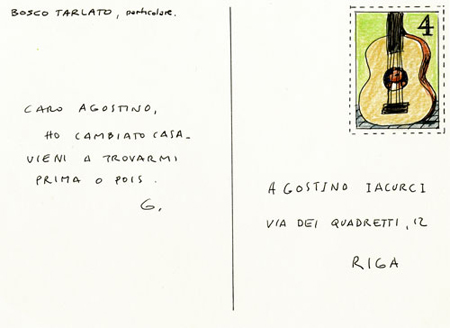 BOSCO TARLATO, particolare.
4
CARO AGOSTINO,
HO CAMBIATO CASA.
VIENI A TROVARMI
PRIMA O POIS.
G.
AGOSTINO IACURCI
VIA DEI QUADRETTI, 12
RIGA